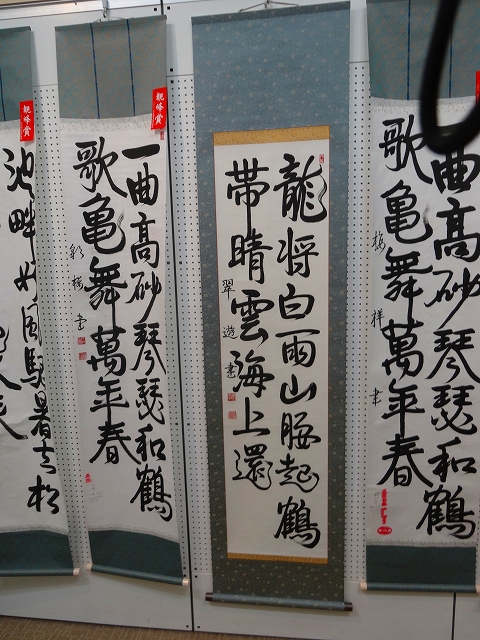 曲高砂琴瑟和鶴
歌亀舞萬年春
梅祥書
龍将白雨山腰起鶴
帯晴雲海上還
翠遊書
親峰賞
一曲高砂琴瑟和鶴
歌亀舞萬年春
彩梅書
親峰賞
池畔